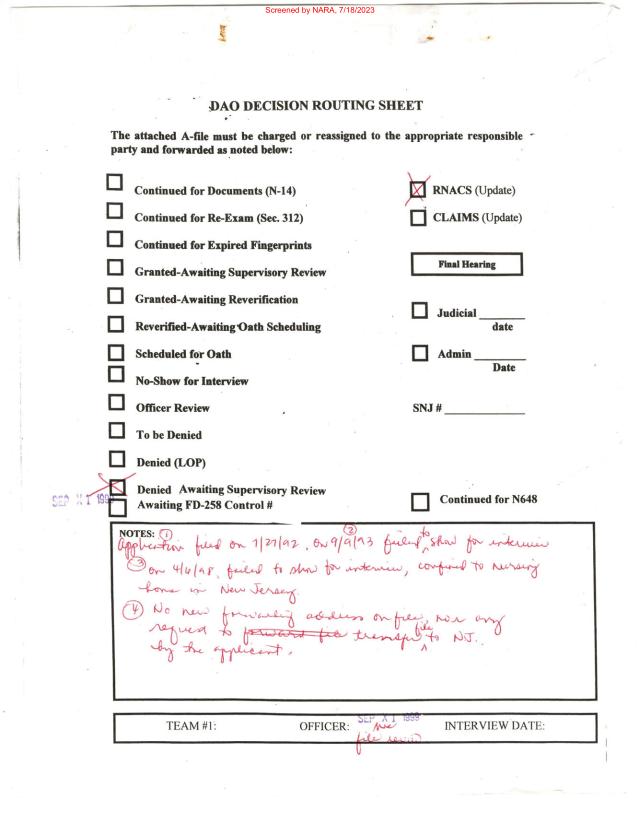 Screened by NARA, 7/18/2023
DAO DECISION ROUTING SHEET
The attached A-file must be charged or reassigned to the appropriate responsible
party and forwarded as noted below:
Continued for Documents (N-14)
Continued for Re-Exam (Sec. 312)
Continued for Expired Fingerprints
Granted-Awaiting Supervisory Review
Granted-Awaiting Reverification
Reverified-Awaiting Oath Scheduling
Scheduled for Oath
No-Show for Interview
Officer Review
To be Denied
Denied (LOP)
Denied Awaiting Supervisory Review
Awaiting FD-258 Control #
RNACS (Update)
CLAIMS (Update)
Final Hearing
Judicial
date
Admin
Date
SNJ #
Continued for N648
SEP
NOTES: ①
Application filed on 7/27/92, ② on 9/9/93 failed to show for interview
③ on 4/6/98, failed to show for interview, confined to nursing
home in New Jersey.
④ No new forwarding address on file, nor any
request to forward file transfer file to NJ.
by the applicant.
TEAM #1: OFFICER: INTERVIEW DATE:
SEP 1999
file